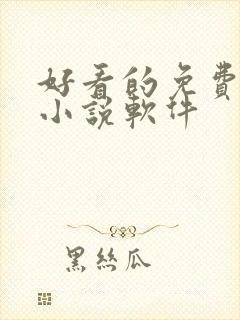 好看的免費
小說軟件
黑絲瓜